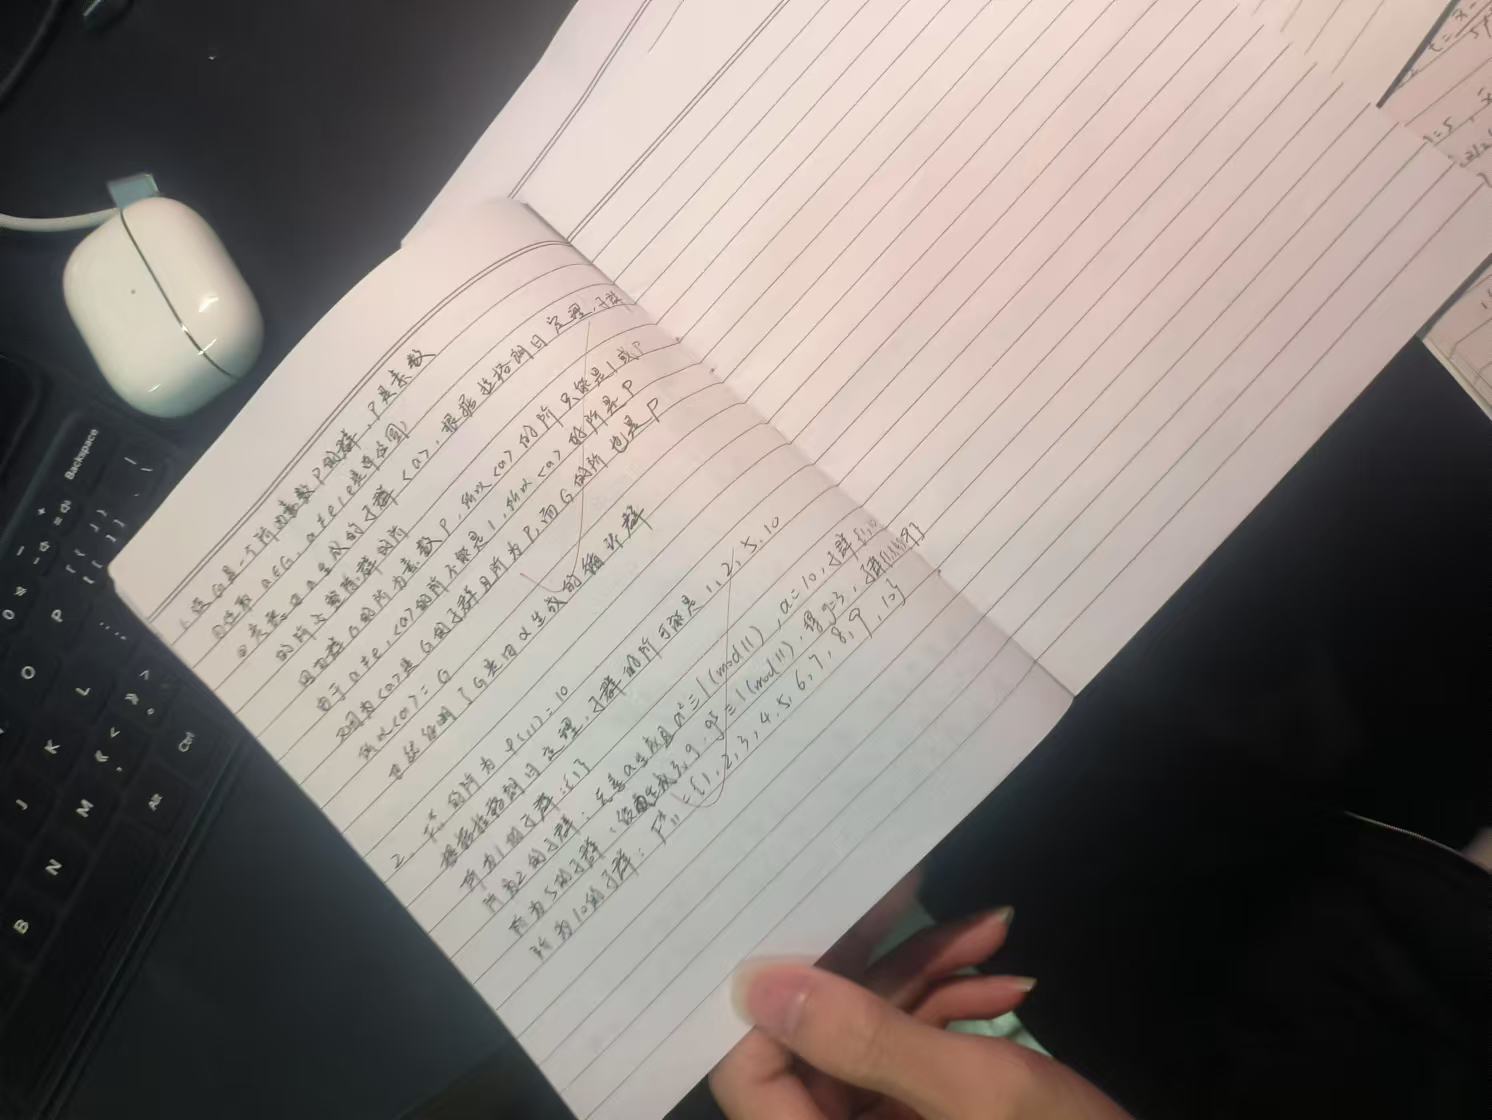 1. 设G是一个阶为素数P的群，P是素数
①任取 a∈G，a≠e（e是单位圆）
② 考虑由a生成的子群<a>，根据拉格朗日定理，子群
的阶必整除群的阶
因为群G的阶为素数P，所以<a>的阶只能是1或P
由于a≠e，<a>的阶不能是1，所以<a>的阶是P
又因为<a>是G的子群且阶为P，而G的阶也是P
所以<a>=G
也就证明了G是由a生成的循环群
2. F*₁₁的阶为φ(11)=10
根据拉格朗日定理，子群的阶可能是1,2,5,10
阶为1的子群：{1}
阶为2的子群：元素a生成且a²≡1(mod11)，a=10，子群{1,10}
阶为5的子群：生成元g，g⁵≡1(mod11)，得g=3，子群{1,3,4,5,9}
阶为10的子群：F*₁₁={1,2,3,4,5,6,7,8,9,10}
Backspace
P
O
L
K
J
M
N
B
Ctrl
Alt